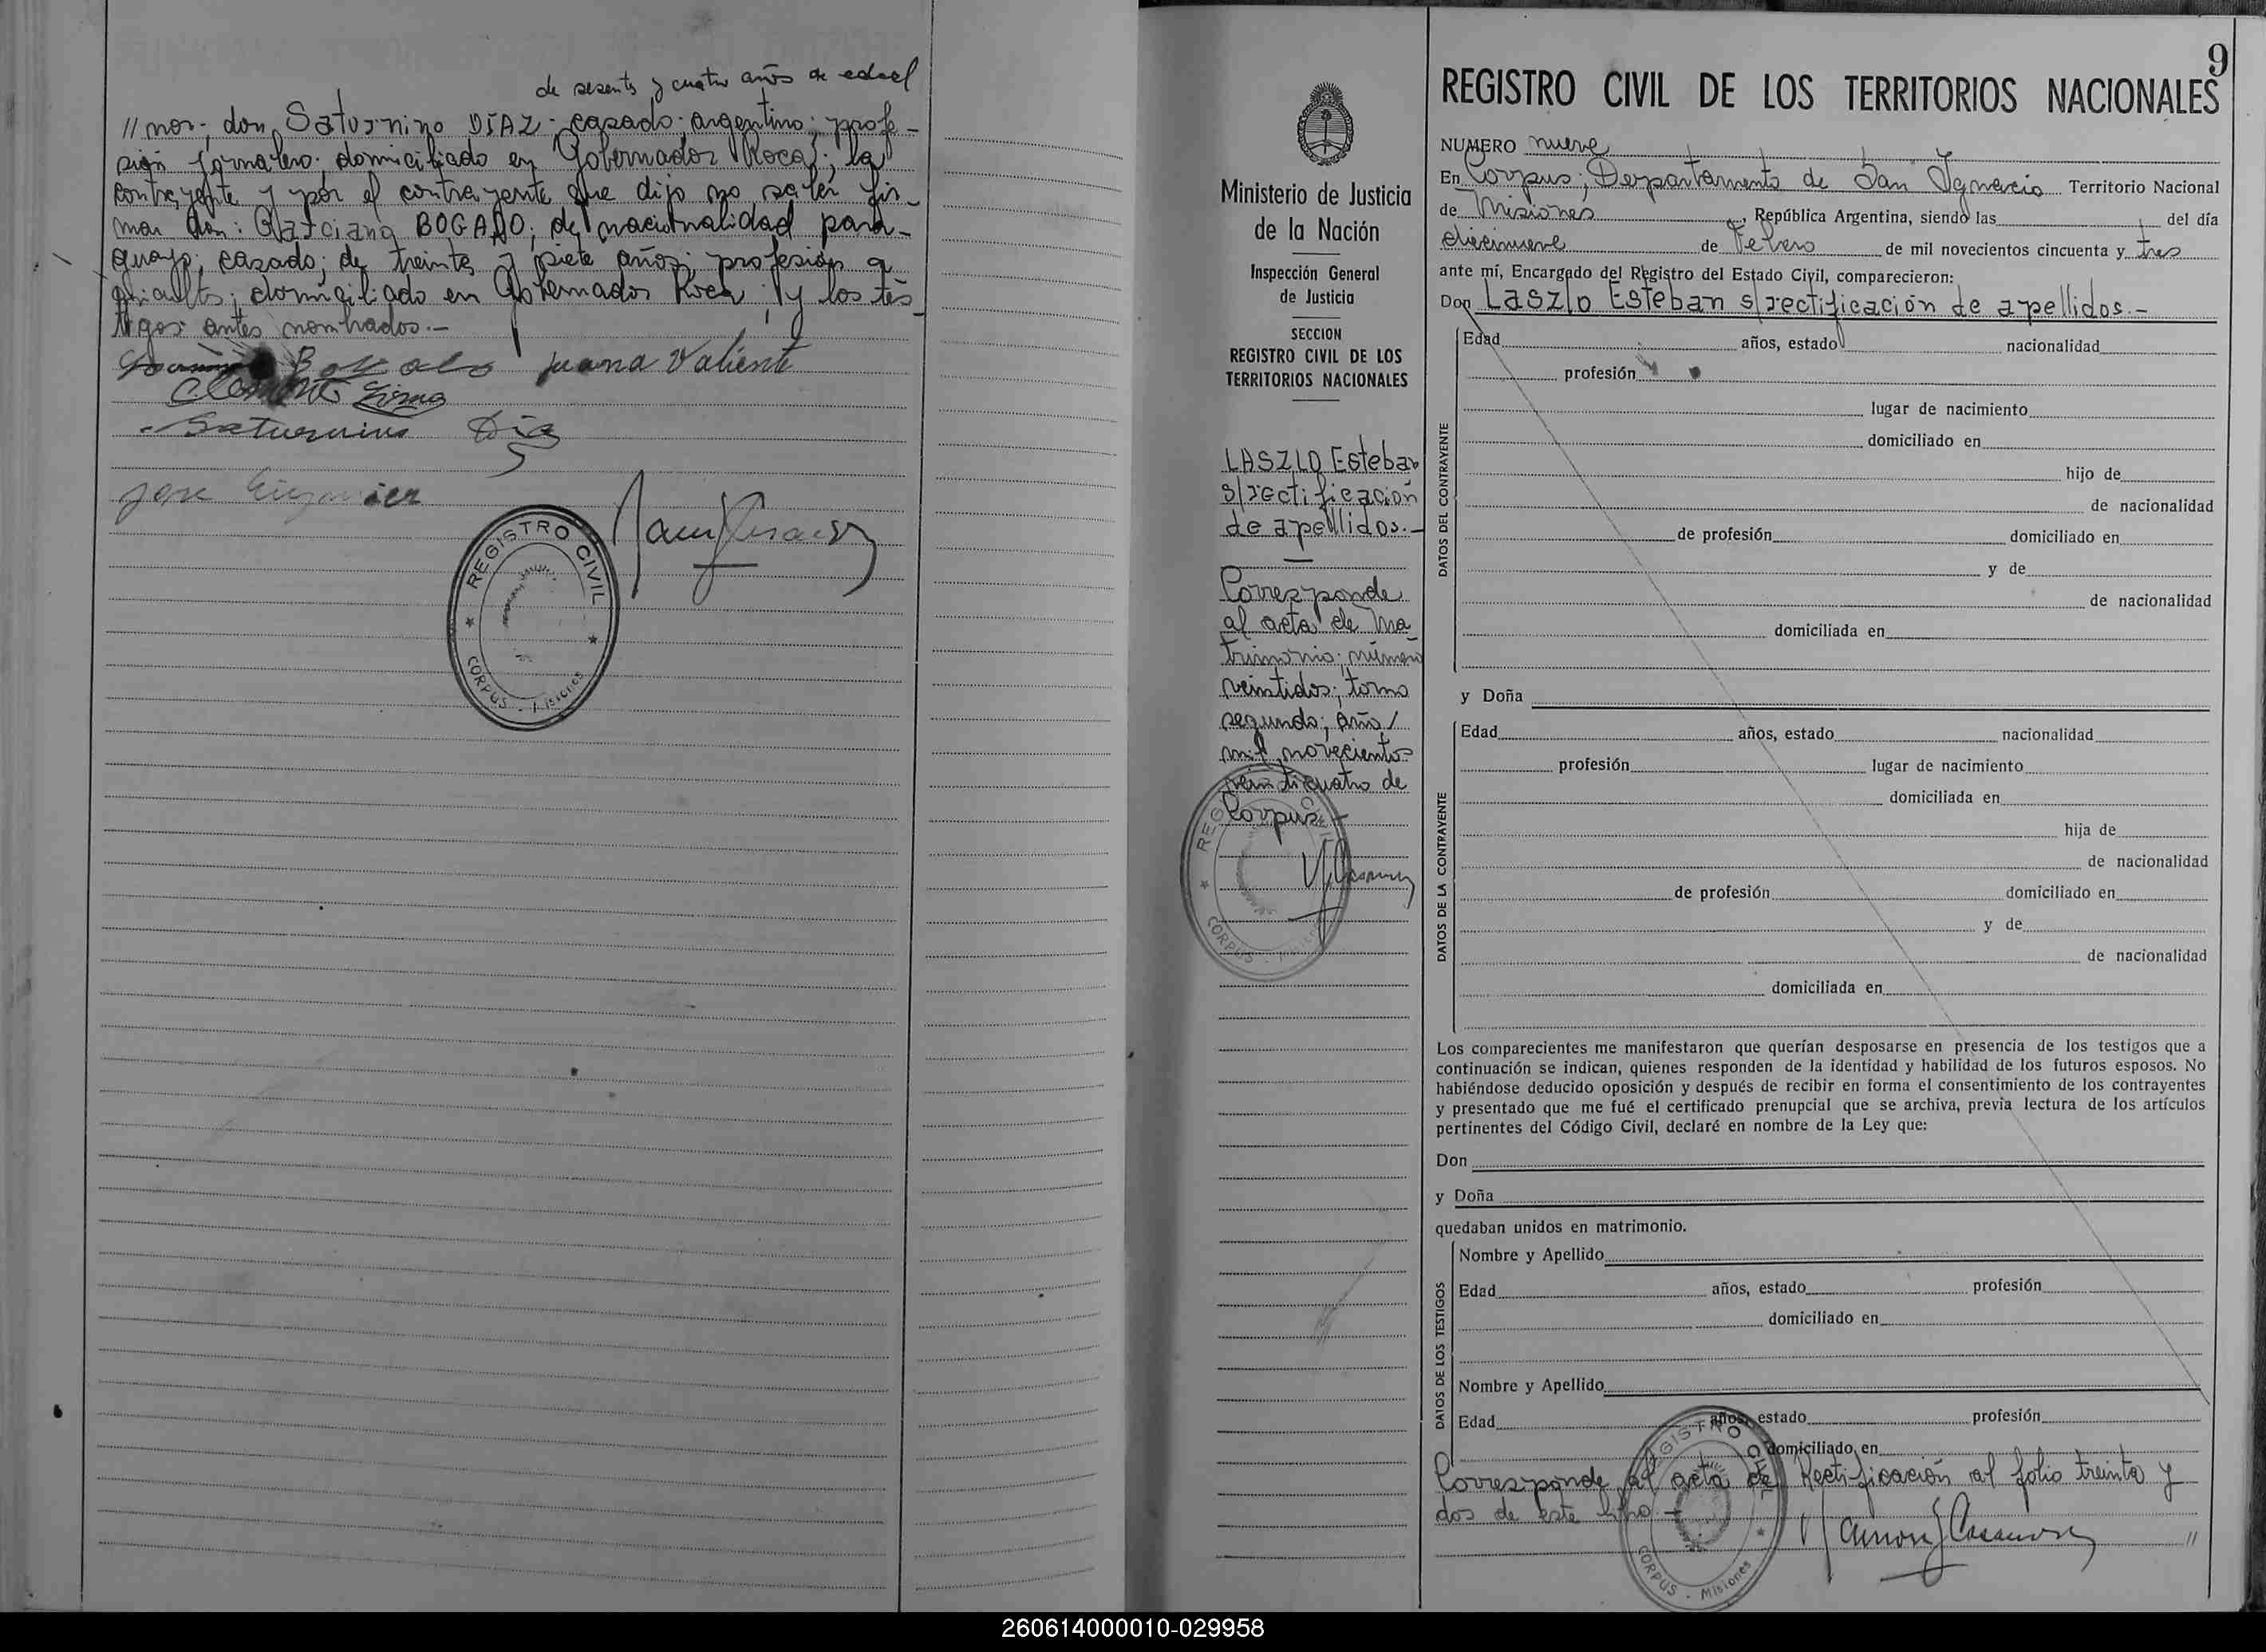 de sesenta y cuatro años de edad
// nor; don Saturnino DIAZ; casado; argentino; profe-
sión jornalero; domiciliado en Gobernador Roca; la
contrayente y por el contrayente que dijo no saber fir-
mar don: BOGADO; de nacionalidad para-
guayo; casado; de treinta y siete años; profesión a-
gricultor; domiciliado en Gobernador Roca; y los tes-
tigos antes nombrados.-
Juana Valiente
Saturnino Diaz
Jose
REGISTRO CIVIL
CORPUS - Misiones
9
REGISTRO CIVIL DE LOS TERRITORIOS NACIONALES
Ministerio de Justicia
de la Nación
Inspección General
de Justicia
SECCION
REGISTRO CIVIL DE LOS
TERRITORIOS NACIONALES
LASZLO Esteban
s/rectificación
de apellidos.-
Corresponde
al acta de Ma-
trimonio; número
veintidos; tomo
segundo; año /
mil novecientos
veinticuatro de
Corpus.-
REGISTRO CIVIL
CORPUS - Misiones
NUMERO nueve
En Corpus; Departamento de San Ignacio Territorio Nacional
de Misiones, República Argentina, siendo las del día
diecinueve de Febrero de mil novecientos cincuenta y tres
ante mí, Encargado del Registro del Estado Civil, comparecieron:
Don Laszlo Esteban s/rectificación de apellidos.-
DATOS DEL CONTRAYENTE
Edad años, estado nacionalidad
profesión
lugar de nacimiento
domiciliado en
hijo de
de nacionalidad
de profesión domiciliado en
y de
de nacionalidad
domiciliada en
y Doña
DATOS DE LA CONTRAYENTE
Edad años, estado nacionalidad
profesión lugar de nacimiento
domiciliada en
hija de
de nacionalidad
de profesión domiciliado en
y de
de nacionalidad
domiciliada en
Los comparecientes me manifestaron que querían desposarse en presencia de los testigos que a
continuación se indican, quienes responden de la identidad y habilidad de los futuros esposos. No
habiéndose deducido oposición y después de recibir en forma el consentimiento de los contrayentes
y presentado que me fué el certificado prenupcial que se archiva, previa lectura de los artículos
pertinentes del Código Civil, declaré en nombre de la Ley que:
Don
y Doña
quedaban unidos en matrimonio.
DATOS DE LOS TESTIGOS
Nombre y Apellido
Edad años, estado profesión
domiciliado en
Nombre y Apellido
Edad años, estado profesión
domiciliado en
Corresponde al acta de Rectificación al folio treinta y
dos de este libro.-
Ramon J Casanova //
REGISTRO CIVIL
CORPUS - Misiones
260614000010-029958